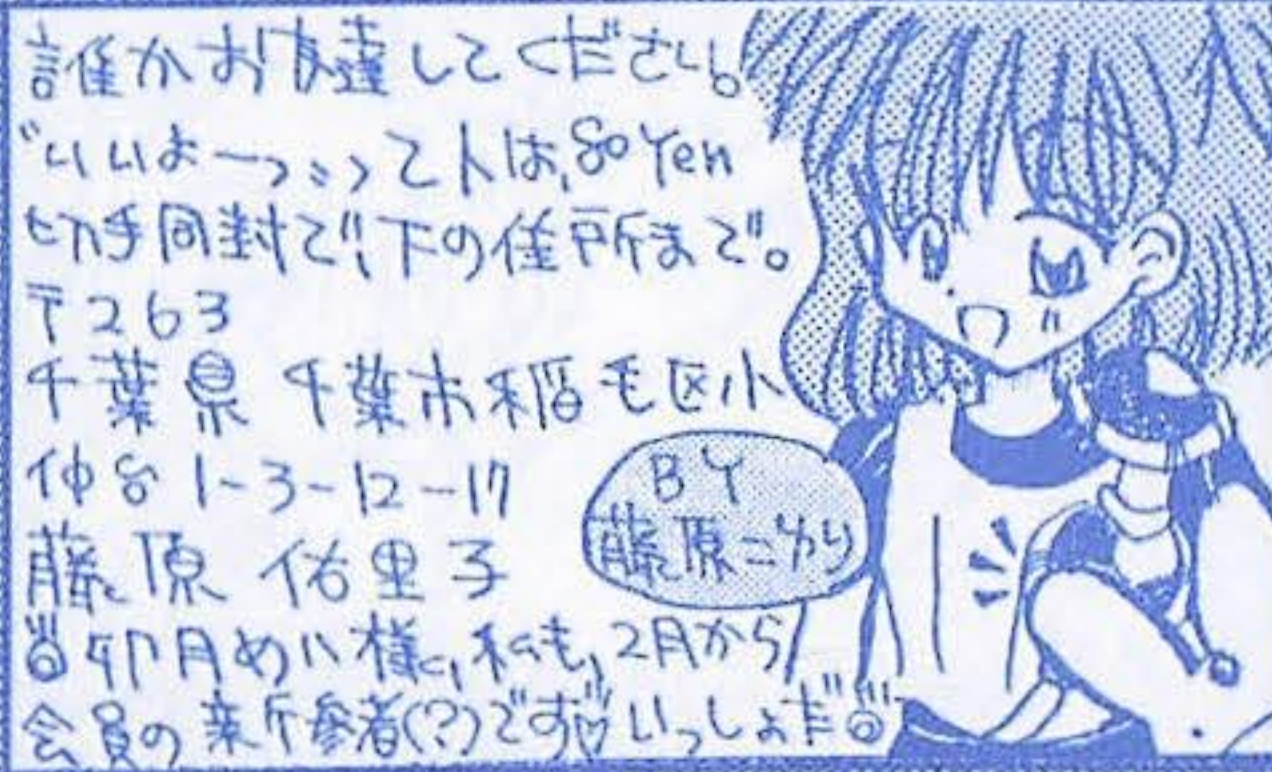 誰かお友達してください。
"いいよーっ"って人は、80Yen
切手同封で、下の住所まで。
〒263
千葉県 千葉市稲毛区小
仲台1-3-12-17
藤原 佑里子
卯月めい様、私も、2月から
会員の新参者(?)です♡いっしょだ
BY
藤原こゆり